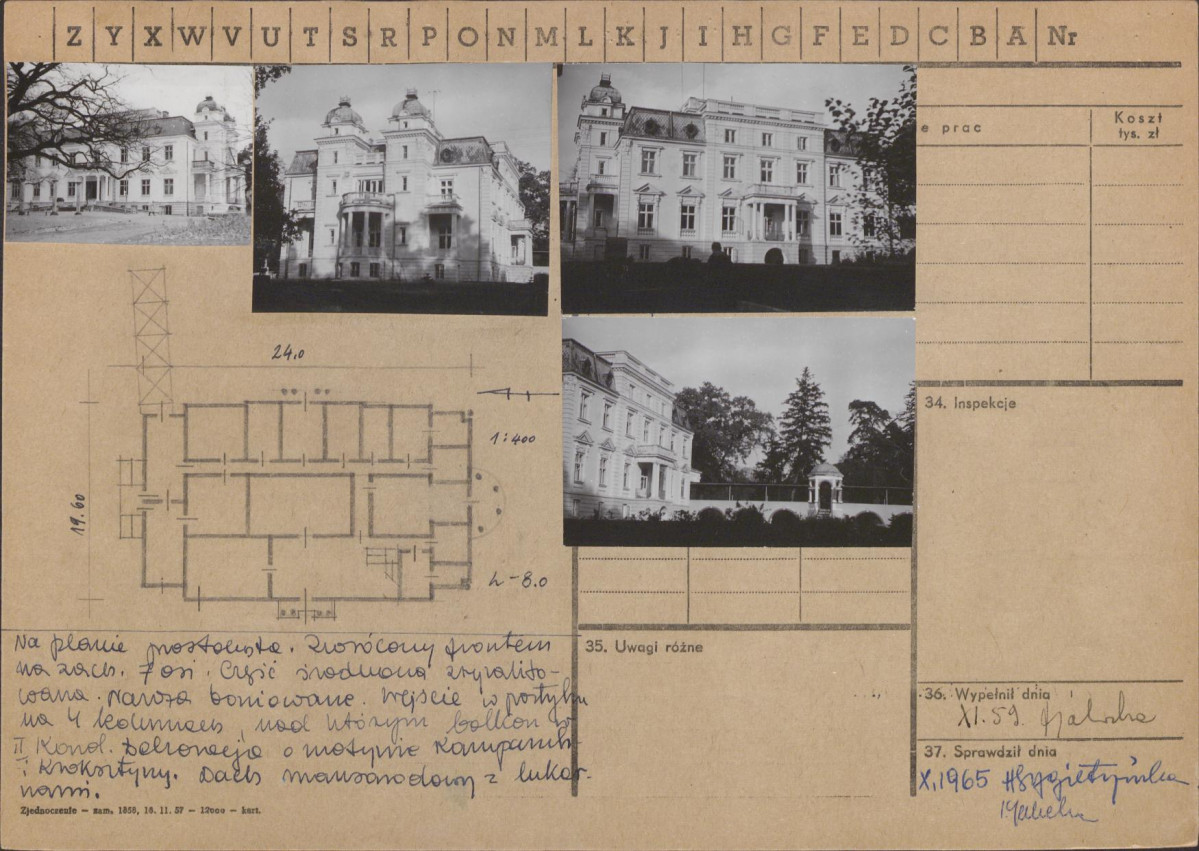 Z Y X W V U T S R P O N M L K J I H G F E D C B A Nr
e prac
Koszt
tys. zł
24.0
1:400
19.60
h-8.0
34. Inspekcje
Na planie prostokąta. Zwrócony frontem
na zach. 7 osi. Część środkowa zryzalito-
wana. Naroża boniowane. Wejście w portyku
na 4 kolumnach, nad którym balkon w
II Kond. Dekoracja o motywie kampanul
i kroksztyny. Dach mansardowy z lukar-
nami.
Zjednoczenie — zam. 1858, 18. 11. 57 — 12000 — kart.
35. Uwagi różne
36. Wypełnił dnia
XI.59.
37. Sprawdził dnia
X.1965